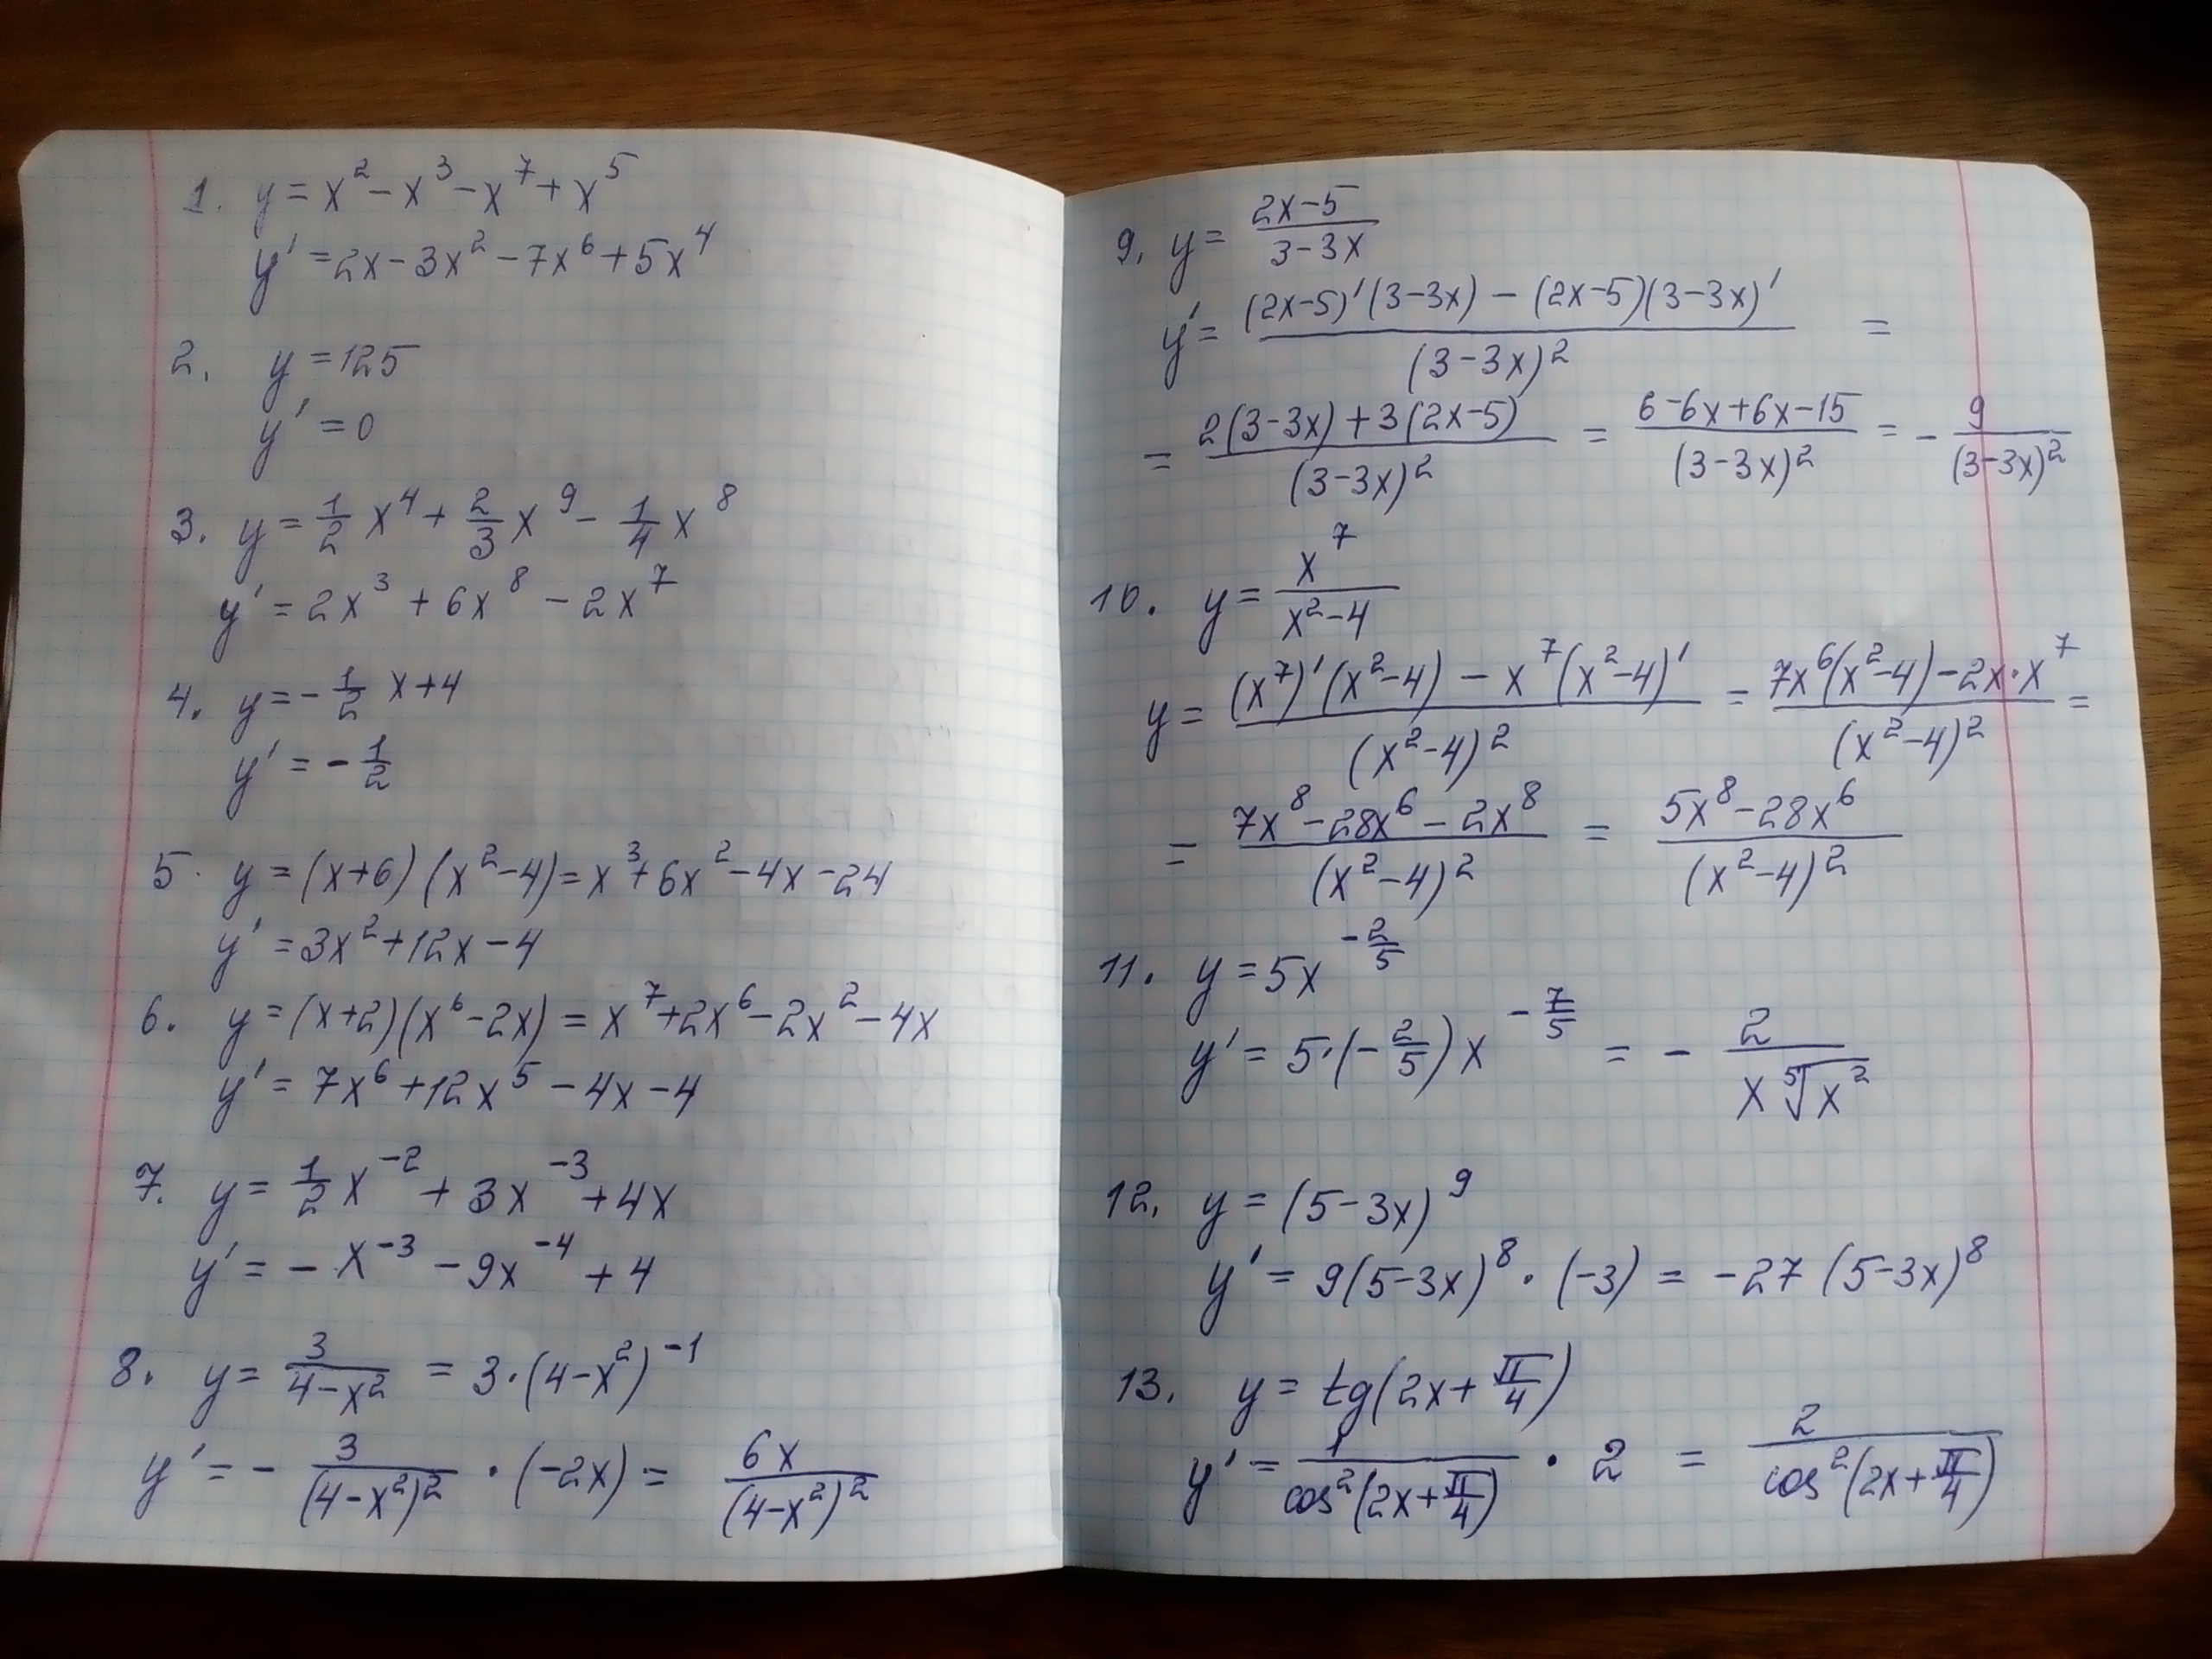 1. y = x² - x³ - x⁷ + x⁵
y' = 2x - 3x² - 7x⁶ + 5x⁴
2. y = 125
y' = 0
3. y = 1/2 x⁴ + 2/3 x⁹ - 1/4 x⁸
y' = 2x³ + 6x⁸ - 2x⁷
4. y = - 1/2 x + 4
y' = - 1/2
5. y = (x+6)(x²-4) = x³ + 6x² - 4x - 24
y' = 3x² + 12x - 4
6. y = (x+2)(x⁶-2x) = x⁷ + 2x⁶ - 2x² - 4x
y' = 7x⁶ + 12x⁵ - 4x - 4
7. y = 1/2 x⁻² + 3x⁻³ + 4x
y' = - x⁻³ - 9x⁻⁴ + 4
8. y = 3/(4-x²) = 3·(4-x²)⁻¹
y' = - 3/(4-x²)² · (-2x) = 6x/(4-x²)²
9. y = (2x-5)/(3-3x)
y' = ((2x-5)'(3-3x) - (2x-5)(3-3x)')/(3-3x)² =
= (2(3-3x) + 3(2x-5))/(3-3x)² = (6-6x+6x-15)/(3-3x)² = - 9/(3-3x)²
10. y = x⁷/(x²-4)
y = ((x⁷)'(x²-4) - x⁷(x²-4)')/(x²-4)² = (7x⁶(x²-4) - 2x·x⁷)/(x²-4)² =
= (7x⁸ - 28x⁶ - 2x⁸)/(x²-4)² = (5x⁸ - 28x⁶)/(x²-4)²
11. y = 5x^(-2/5)
y' = 5·(-2/5)x^(-7/5) = - 2/(x ⁵√x²)
12. y = (5-3x)⁹
y' = 9(5-3x)⁸·(-3) = -27(5-3x)⁸
13. y = tg(2x + π/4)
y' = 1/cos²(2x + π/4) · 2 = 2/cos²(2x + π/4)